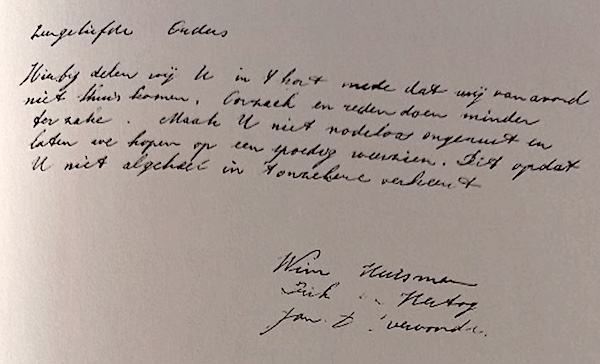 Zeergeliefde Ouders
Hierbij delen wij U in 't kort mede dat wij vanavond
niet thuis komen. Oorzaak en reden doen minder
ter zake. Maak U niet nodeloos ongerust en
laten we hopen op een spoedig weerzien. Dit opdat
U niet algeheel in 't onzekere verkeert
Wim Huisman
Dirk Hertog
Jan